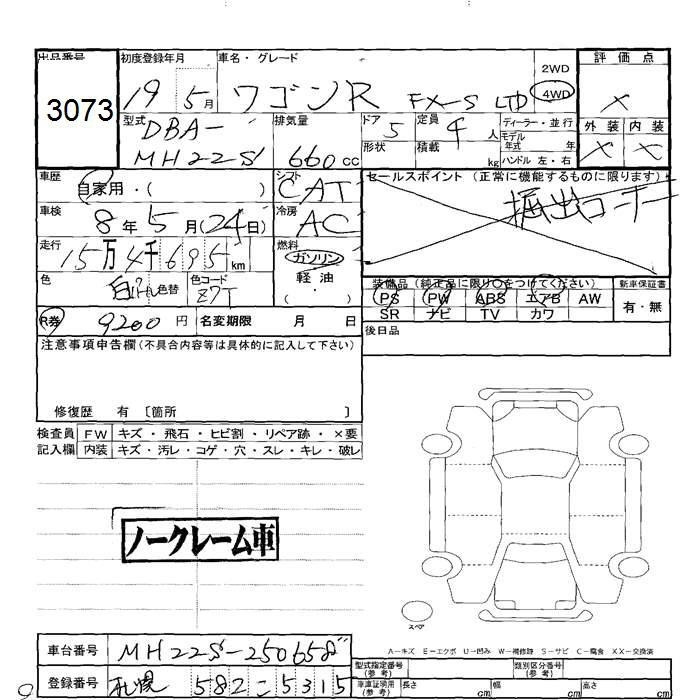 出品番号
3073
初度登録年月
19 5月
車名・グレード
ワゴンR FX-S LTD
2WD
4WD
評価点
×
外装 内装
× ×
型式
DBA-
MH22S
排気量
660cc
ドア
5
形状
定員
4人
積載
kg
ディーラー・並行
モデル年式 年
ハンドル 左・右
車歴
自家用・( )
シフト
CAT
セールスポイント (正常に機能するものに限ります)
掘出コーナー
車検
8年5月(24日)
冷房
AC
走行
15万4千695km
燃料
ガソリン
軽油
( )
色
白パール 色替
色コード
Z7T
装備品 (純正品に限り○をつけてください)
PS PW ABS エアB AW
SR ナビ TV カワ
新車保証書
有・無
R券 9200円
名変期限 月 日
後日品
注意事項申告欄(不具合内容等は具体的に記入して下さい)
修復歴 有 〔箇所 〕
検査員
記入欄
FW キズ・飛石・ヒビ割・リペア跡・×要
内装 キズ・汚レ・コゲ・穴・スレ・キレ・破レ
ノークレーム車
スペア
A-キズ E-エクボ U-凹み W-補修跡 S-サビ C-腐食 XX-交換済
車台番号 MH22S-250658
登録番号 札幌 582こ5315
型式指定番号
(参考)
類別区分番号
(参考)
車庫証明用
(参考)
長さ cm 幅 cm 高さ cm